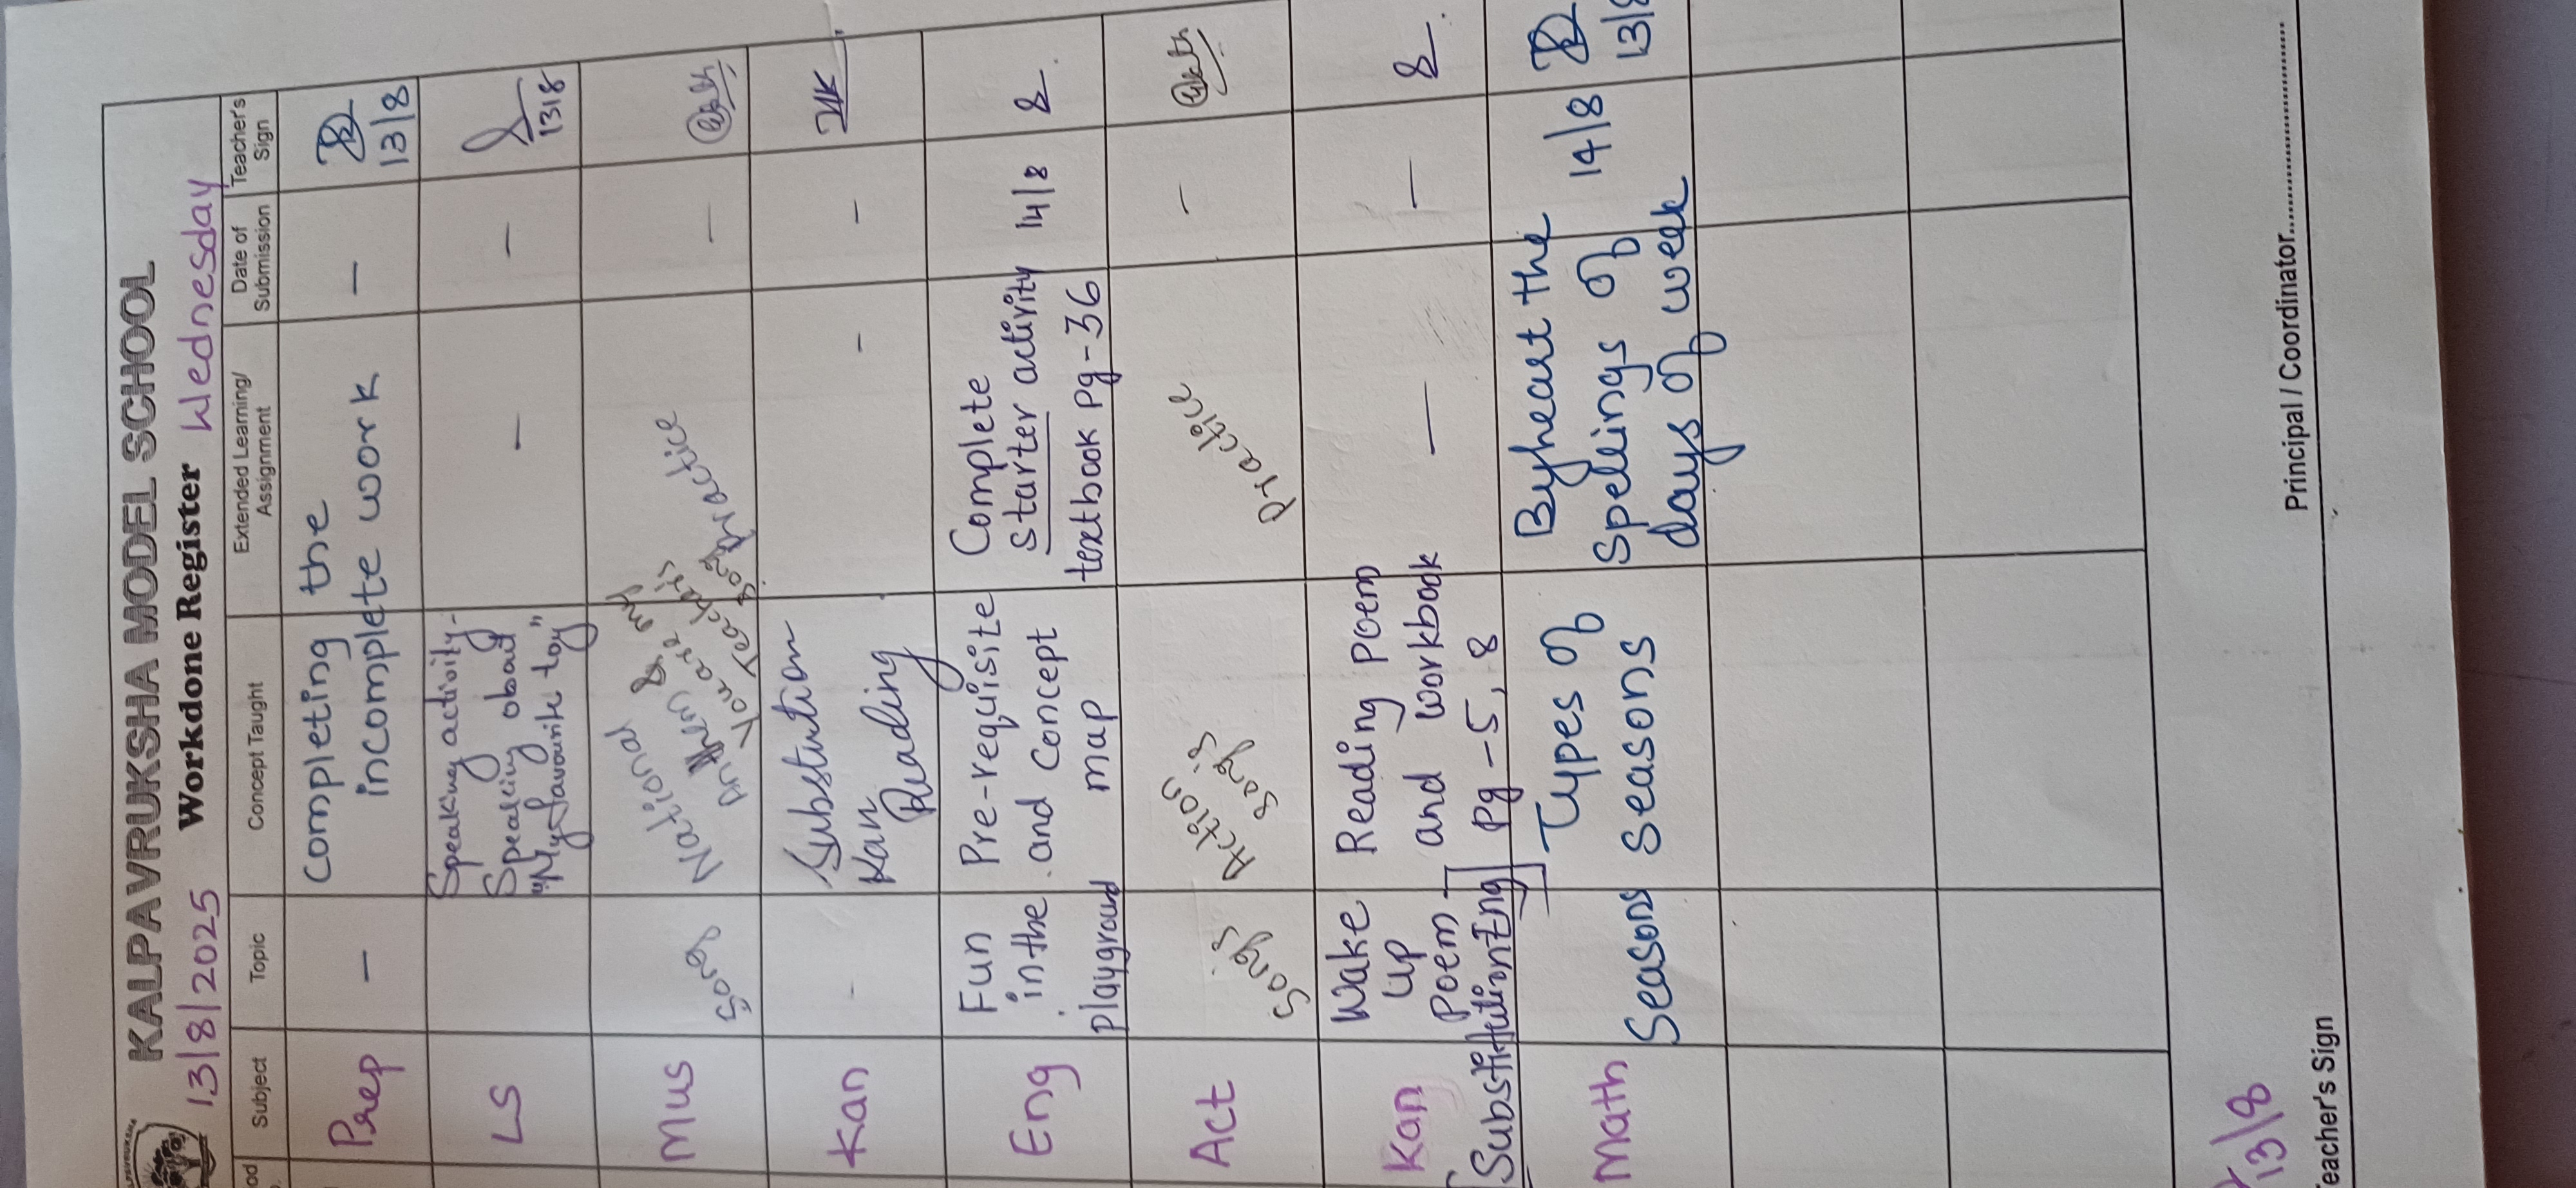 KALPAVRUKSHA MODEL SCHOOL
13/8/2025 Workdone Register Wednesday
Subject Topic Concept Taught Extended Learning/ Assignment Date of Submission Teacher's Sign
Prep — Completing the
incomplete work — 13/8
LS Speaking activity-
Speaking about
"My favourite toy" — — 13/8
Mus Songs National
Anthem
You are my
Teacher
song practice —
Kan - Substution
Kan
Reading - -
Eng Fun
in the
playground Pre-requisite
and Concept
map Complete
starter activity
textbook Pg-36 14/8
Act Songs Action
songs Practice —
Kan Wake
up
Poem Reading Poem
and workbook
Pg-5, 8 — —
Substitution Eng
Math Seasons Types of
seasons Byheart the
spellings of
days of week 14/8 13/8
13/8
Teacher's Sign Principal / Coordinator